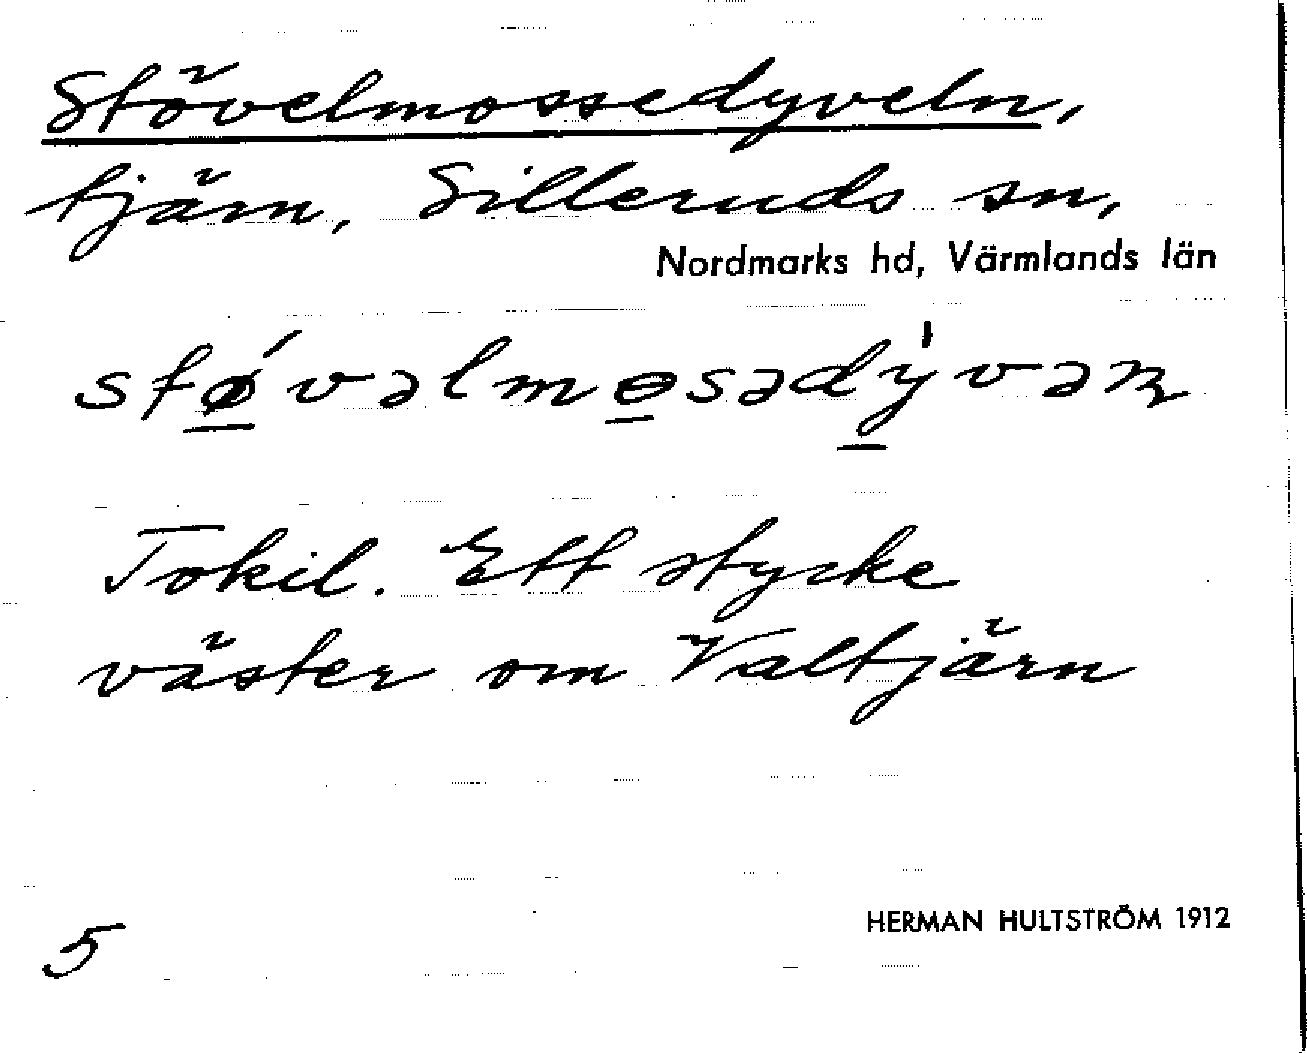 Stövelmossedyveln,
tjärn, Silleruds sn,
Nordmarks hd, Värmlands län
Tokil. Ett stycke
väster om Valtjärn
HERMAN HULTSTRÖM 1912
5